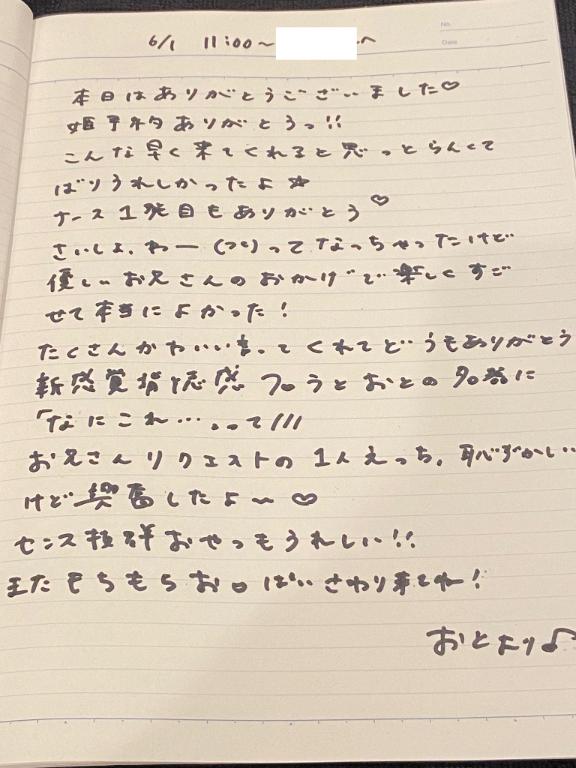 No.
Date
6/1 11:00〜 へ
本日はありがとうございました♡
姫予約ありがとうっ!!
こんな早く来てくれると思っとらんくて
ばりうれしかったよ☆
ナース1発目もありがとう♡
さいしょ、わー(°°)ってなっちゃったけど
優しいお兄さんのおかげで楽しくすご
せて本当によかった!
たくさんかわいい言ってくれてどうもありがとう
新感覚 感 フロうとおとの名器に
「なにこれ…。って///
お兄さんリクエストの1人えっち、恥ずかしい
けど興奮したよ〜♡
センス抜群おやつもうれしい!!
またもちもちお〇ぱいさわり来てね!
おとより♪